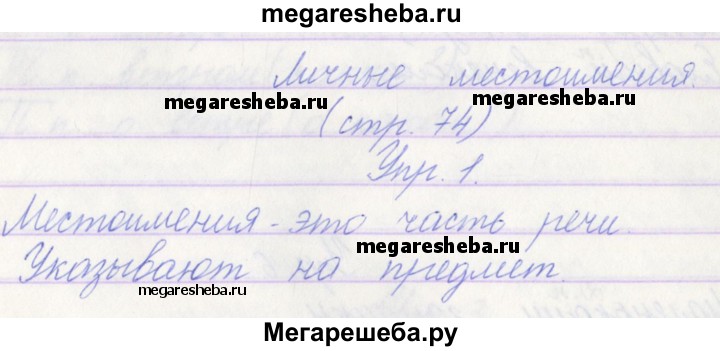 megaresheba.ru
Личные местоимения.
megaresheba.ru megaresheba.ru
(стр. 74)
Упр. 1.
Местоимения - это часть речи.
megaresheba.ru
Указывают на предмет.
megaresheba.ru
Мегарешеба.ру